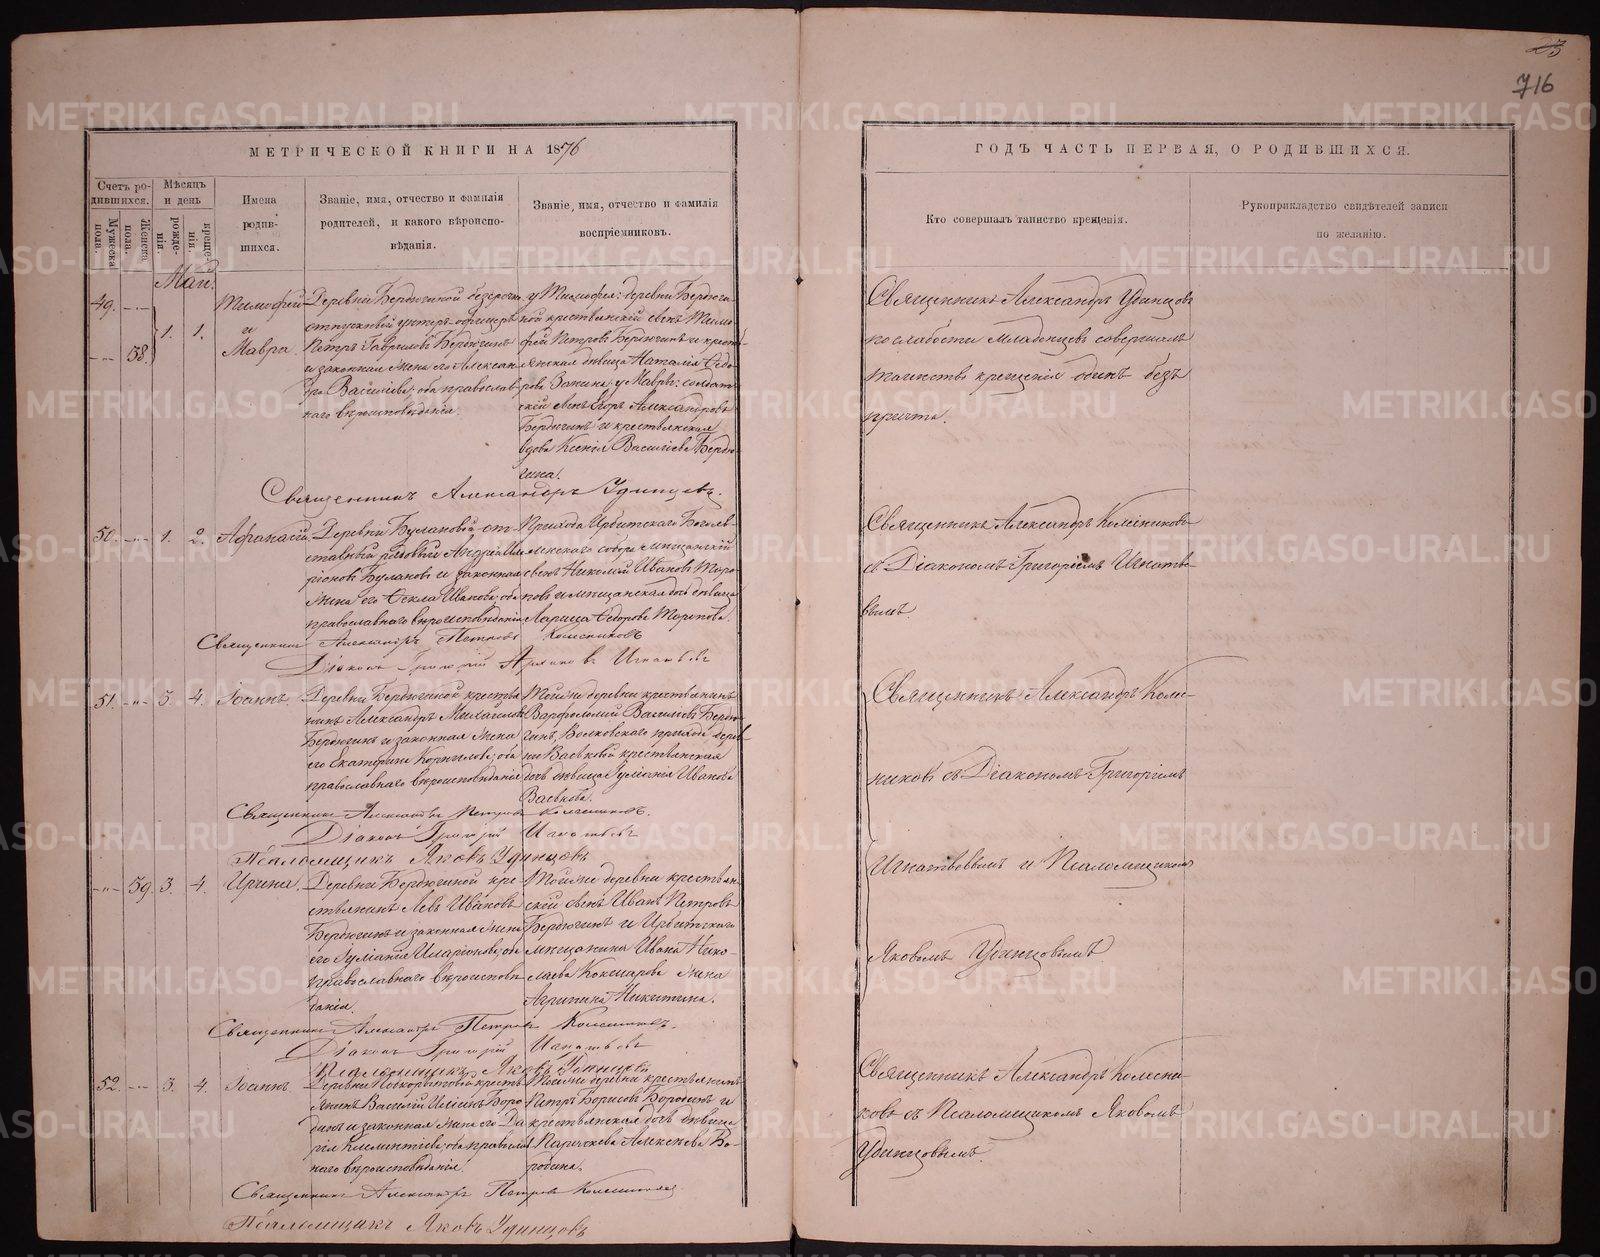 23
716
МЕТРИЧЕСКОЙ КНИГИ НА 1876
ГОДЪ ЧАСТЬ ПЕРВАЯ, О РОДИВШИХСЯ.
Счетъ родившихся.
Мужеска пола.
Женска пола.
Мѣсяцъ и день
рожденія.
крещенія.
Имена родившихся.
Званіе, имя, отчество и фамилія
родителей, и какого вѣроиспо-
вѣданія.
Званіе, имя, отчество и фамилія
воспріемниковъ.
Кто совершалъ таинство крещенія.
Рукоприкладство свидѣтелей записи
по желанію.
Май.
49. 58. 1. 1.
Тимофей
и
Мавра
Деревни Бердюгиной безсрочно
отпускный унтеръ-офицеръ
Петръ Гавриловъ Бердюгинъ
и законная жена его Александ
ра Васильева; оба православ
наго вѣроисповѣданія.
у Тимофея: деревни Бердюги
ной крестьянскій сынъ Тимо
фей Петровъ Бердюгинъ и кресть
янская дѣвица Наталія Ѳедо
рова Зенина; у Мавры: солдат
скій сынъ Егоръ Александровъ
Бердюгинъ и крестьянская
вдова Ксенія Васильева Бердю
гина.
Священникъ Александръ Удинцовъ
по слабости младенцевъ совершалъ
таинство крещенія одинъ безъ
причта.
Священникъ Александръ Удинцовъ.
50. 1. 2. Афанасій.
Деревни Булановой от-
ставный рядовый Андрей Ила
ріоновъ Булановъ и законная
жена его Ѳекла Иванова; оба
православнаго вѣроисповѣданія
Прихода Ирбитскаго Богояв-
ленскаго собора мѣщанскій
сынъ Николай Ивановъ
и мѣщанская дочь дѣвица
Лариса Ѳедорова
Священникъ Александръ Колесниковъ
съ Діакономъ Григоріемъ Игнатье
вымъ
Священникъ Александръ Петровъ Колесниковъ
Діаконъ Григорій Игнатьевъ
51. 3. 4. Іоаннъ.
Деревни Бердюгиной крестья
нинъ Александръ Михайловъ
Бердюгинъ и законная жена
его Екатерина Корнилова; оба
православнаго вѣроисповѣданія
Той же деревни крестьянинъ
Варфоломей Васильевъ Бердю
гинъ, Волковскаго прихода дерев
ни Васьковой крестьянская
дочь дѣвица Іуліанія Иванова
Васькова.
Священникъ Александръ Колес-
никовъ съ Діакономъ Григоріемъ
Игнатьевымъ и Псаломщикомъ
Яковомъ Удинцовымъ
Священникъ Александръ Петровъ Колесниковъ.
Діаконъ Григорій Игнатьевъ
Псаломщикъ Яковъ Удинцовъ
59. 3. 4. Ирина.
Деревни Бердюгиной кре
стьянинъ Левъ Ивановъ
Бердюгинъ и законная жена
его Іуліанія Иларіонова; оба
православнаго вѣроисповѣ
данія.
Той же деревни крестьян
скій сынъ Иванъ Петровъ
Бердюгинъ и Ирбитскаго
мѣщанина Ивана Нико-
лаева Кокшарова жена
Агрипина Никитина.
Священникъ Александръ Петровъ Колесниковъ.
Діаконъ Григорій Игнатьевъ
Псаломщикъ Яковъ Удинцовъ
52. 3. 4. Іоаннъ
крестъ
янинъ Василій Боро
динъ и законная жена его Да
рія Клементіева; оба православ
наго вѣроисповѣданія.
Той же деревни крестьянинъ
Петръ Борисовъ Бородинъ и
крестьянская дочь дѣвица
Параскева Алексѣева Бо-
родина.
Священникъ Александръ Колесни-
ковъ съ Псаломщикомъ Яковомъ
Удинцовымъ.
Священникъ Александръ Петровъ Колесниковъ.
Псаломщикъ Яковъ Удинцовъ
METRIKI.GASO-URAL.RU